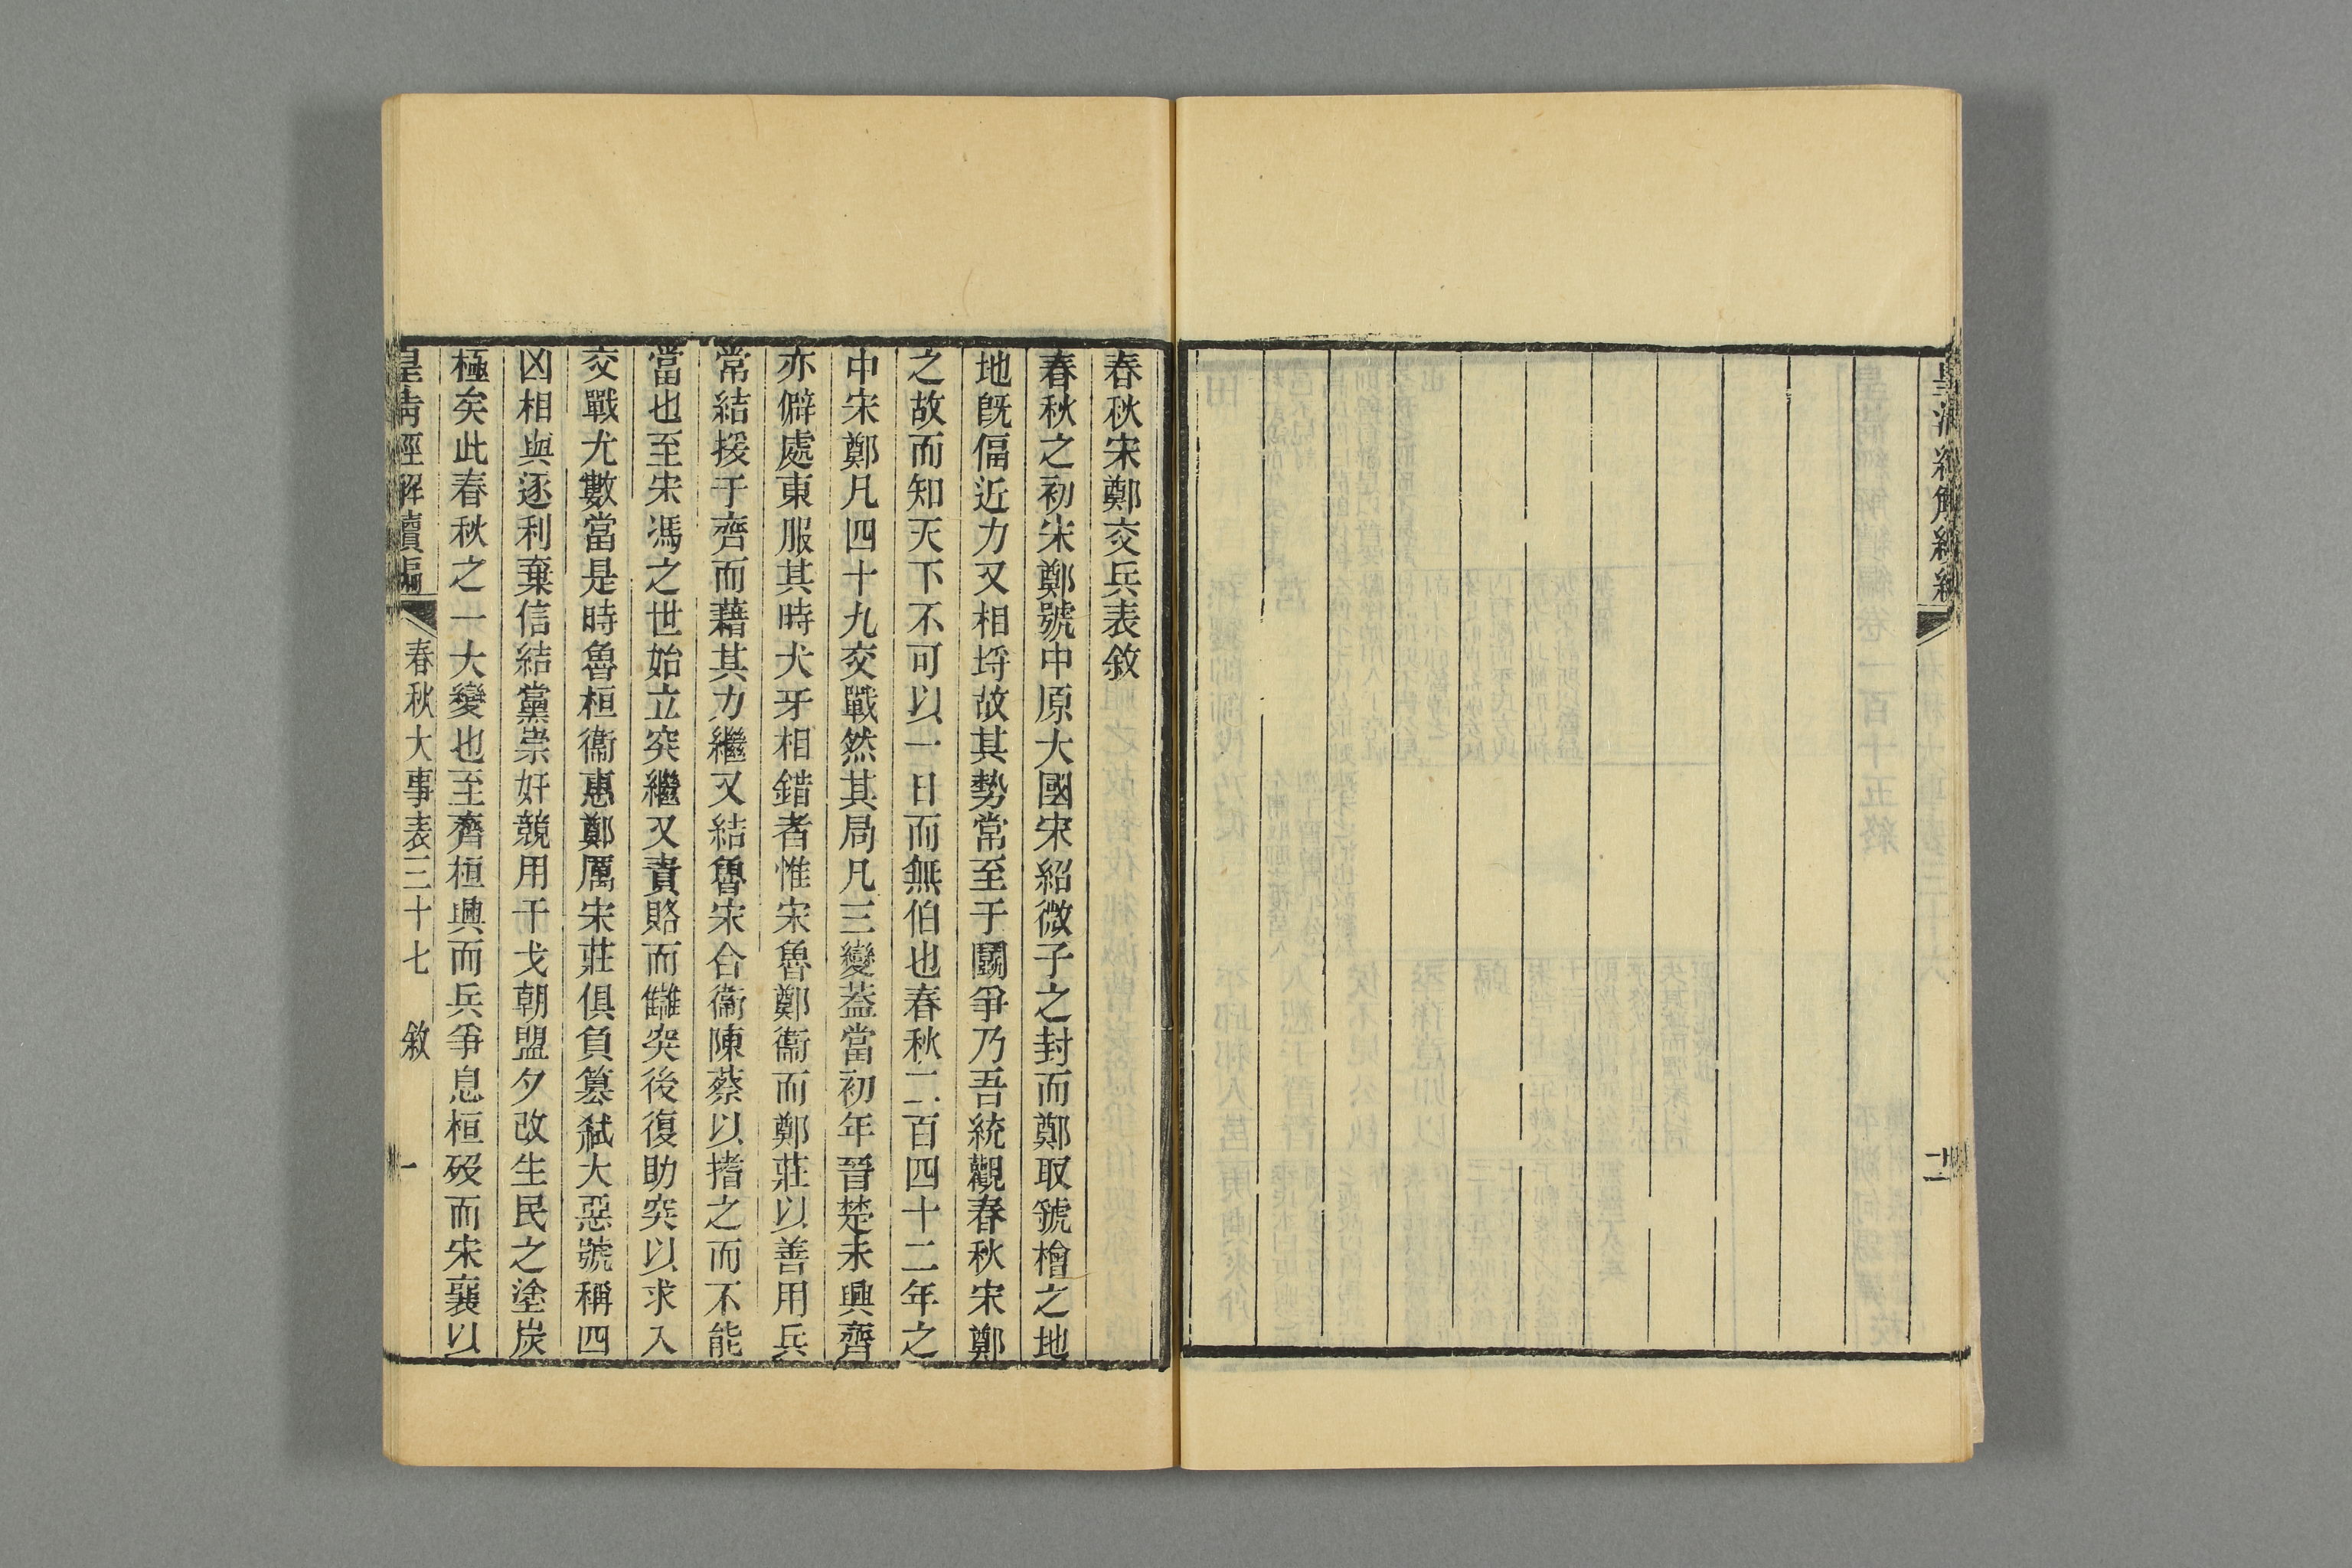 皇清經解續編
十二
春秋宋鄭交兵表敘
春秋之初宋鄭號中原大國宋紹微子之封而鄭取虢檜之地
地既偪近力又相埒故其勢常至于鬬爭乃吾統觀春秋宋鄭
之故而知天下不可以一日而無伯也春秋二百四十二年之
中宋鄭凡四十九交戰然其局凡三變蓋當初年晉楚未興齊
亦僻處東服其時犬牙相錯者惟宋魯鄭衞而鄭莊以善用兵
常結援于齊而藉其力繼又結魯宋合衞陳蔡以搘之而不能
當也至宋馮之世始立突繼又責賂而讎突後復助突以求入
交戰尤數當是時魯桓衞惠鄭厲宋莊俱負篡弑大惡號稱四
凶相與逐利棄信結黨崇奸競用干戈朝盟夕改生民之塗炭
極矣此春秋之一大變也至齊桓興而兵爭息桓歿而宋襄以
皇清經解續編 春秋大事表三十七 敘 一